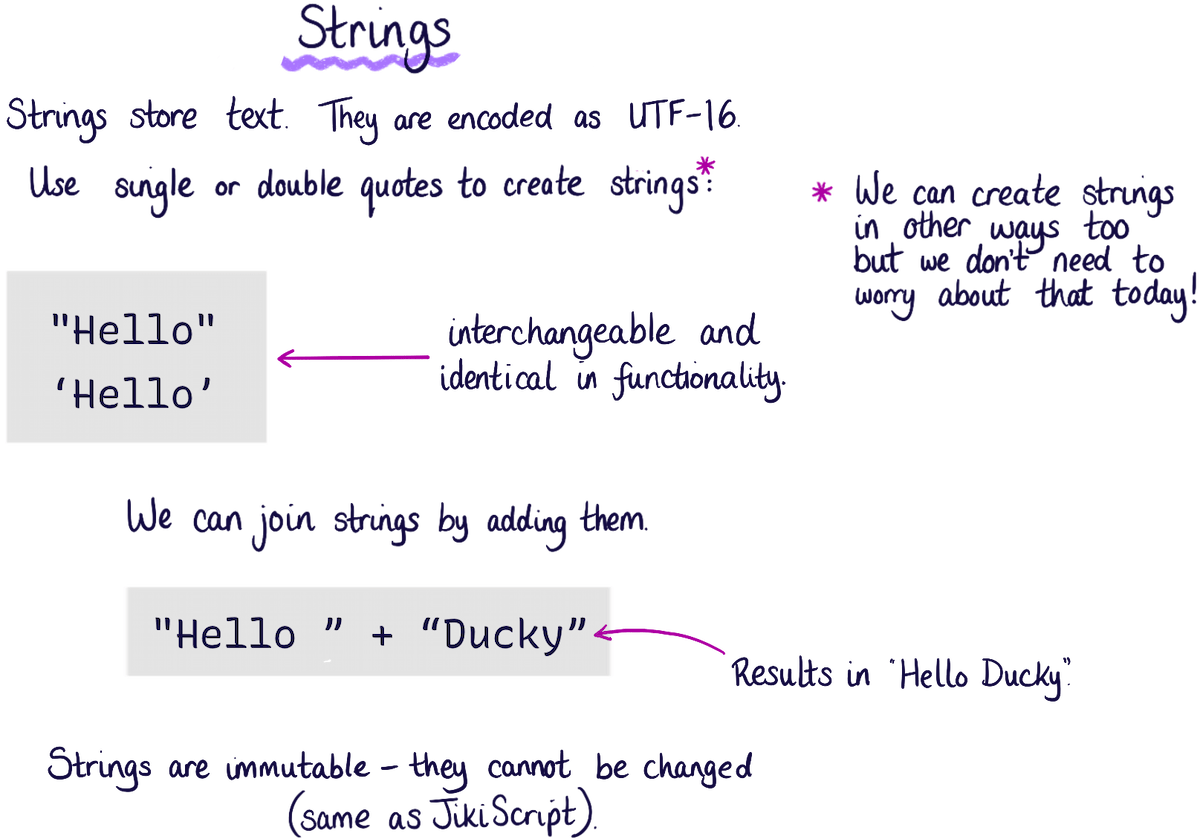 Strings
Strings store text. They are encoded as UTF-16.
Use single or double quotes to create strings*:
* We can create strings
in other ways too
but we don't need to
worry about that today!
"Hello"
‘Hello’
interchangeable and
identical in functionality.
We can join strings by adding them.
"Hello ” + “Ducky”
Results in "Hello Ducky".
Strings are immutable - they cannot be changed
(same as JikiScript).